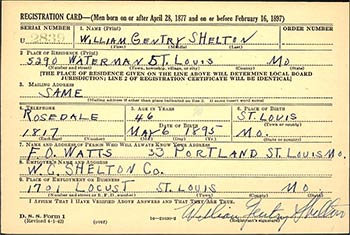 REGISTRATION CARD—(Men born on or after April 28, 1877 and on or before February 16, 1897)
SERIAL NUMBER 1. NAME (Print) ORDER NUMBER
U 2839 WILLIAM GENTRY SHELTON
(First) (Middle) (Last)
2. PLACE OF RESIDENCE (Print)
5290 WATERMAN ST. LOUIS MO
(Number and street) (Town, township, village, or city) (County) (State)
[THE PLACE OF RESIDENCE GIVEN ON THE LINE ABOVE WILL DETERMINE LOCAL BOARD
JURISDICTION; LINE 2 OF REGISTRATION CERTIFICATE WILL BE IDENTICAL]
3. MAILING ADDRESS
SAME
[Mailing address if other than place indicated on line 2. If same insert word same]
4. TELEPHONE 5. AGE IN YEARS 6. PLACE OF BIRTH
ROSEDALE 46 ST. LOUIS
DATE OF BIRTH (Town or county)
1817 MAY 6 1895 MO.
(Exchange) (Number) (Mo.) (Day) (Yr.) (State or country)
7. NAME AND ADDRESS OF PERSON WHO WILL ALWAYS KNOW YOUR ADDRESS
F. O. WATTS 53 PORTLAND ST. LOUIS MO.
8. EMPLOYER'S NAME AND ADDRESS
W. G. SHELTON CO.
9. PLACE OF EMPLOYMENT OR BUSINESS
1701 LOCUST ST. LOUIS MO
(Number and street or R. F. D. number) (Town) (County) (State)
I AFFIRM THAT I HAVE VERIFIED ABOVE ANSWERS AND THAT THEY ARE TRUE.
D. S. S. Form 1
(Revised 4-1-42) (over)
William Gentry Shelton